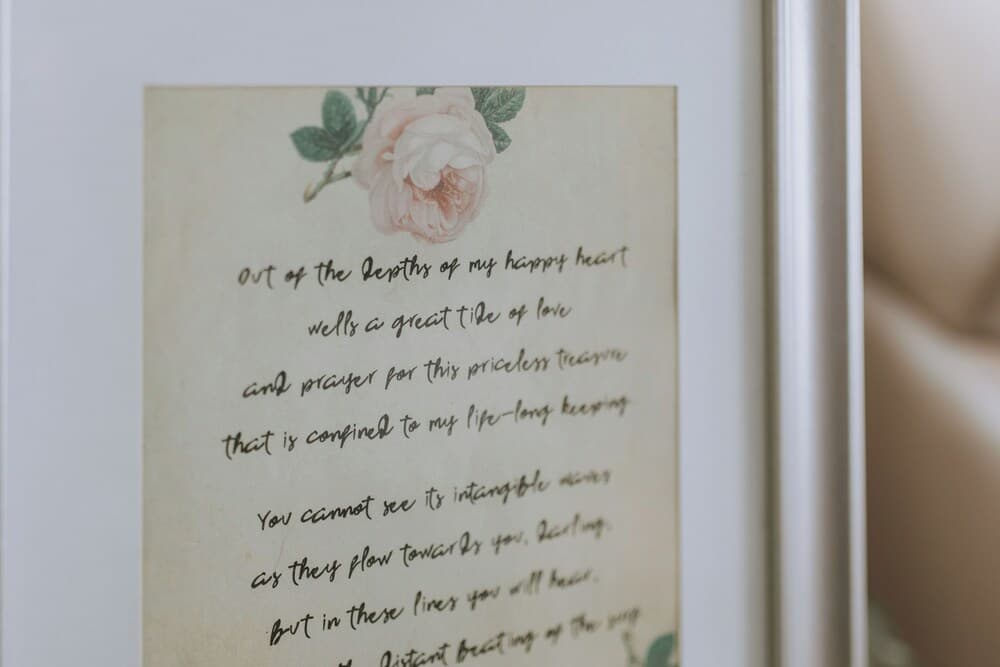 Out of the depths of my happy heart
wells a great tide of love
and prayer for this priceless treasure
that is confined to my life-long keeping
You cannot see its intangible waves
as they flow towards you, darling,
But in these lines you will hear,
distant beating of the surf